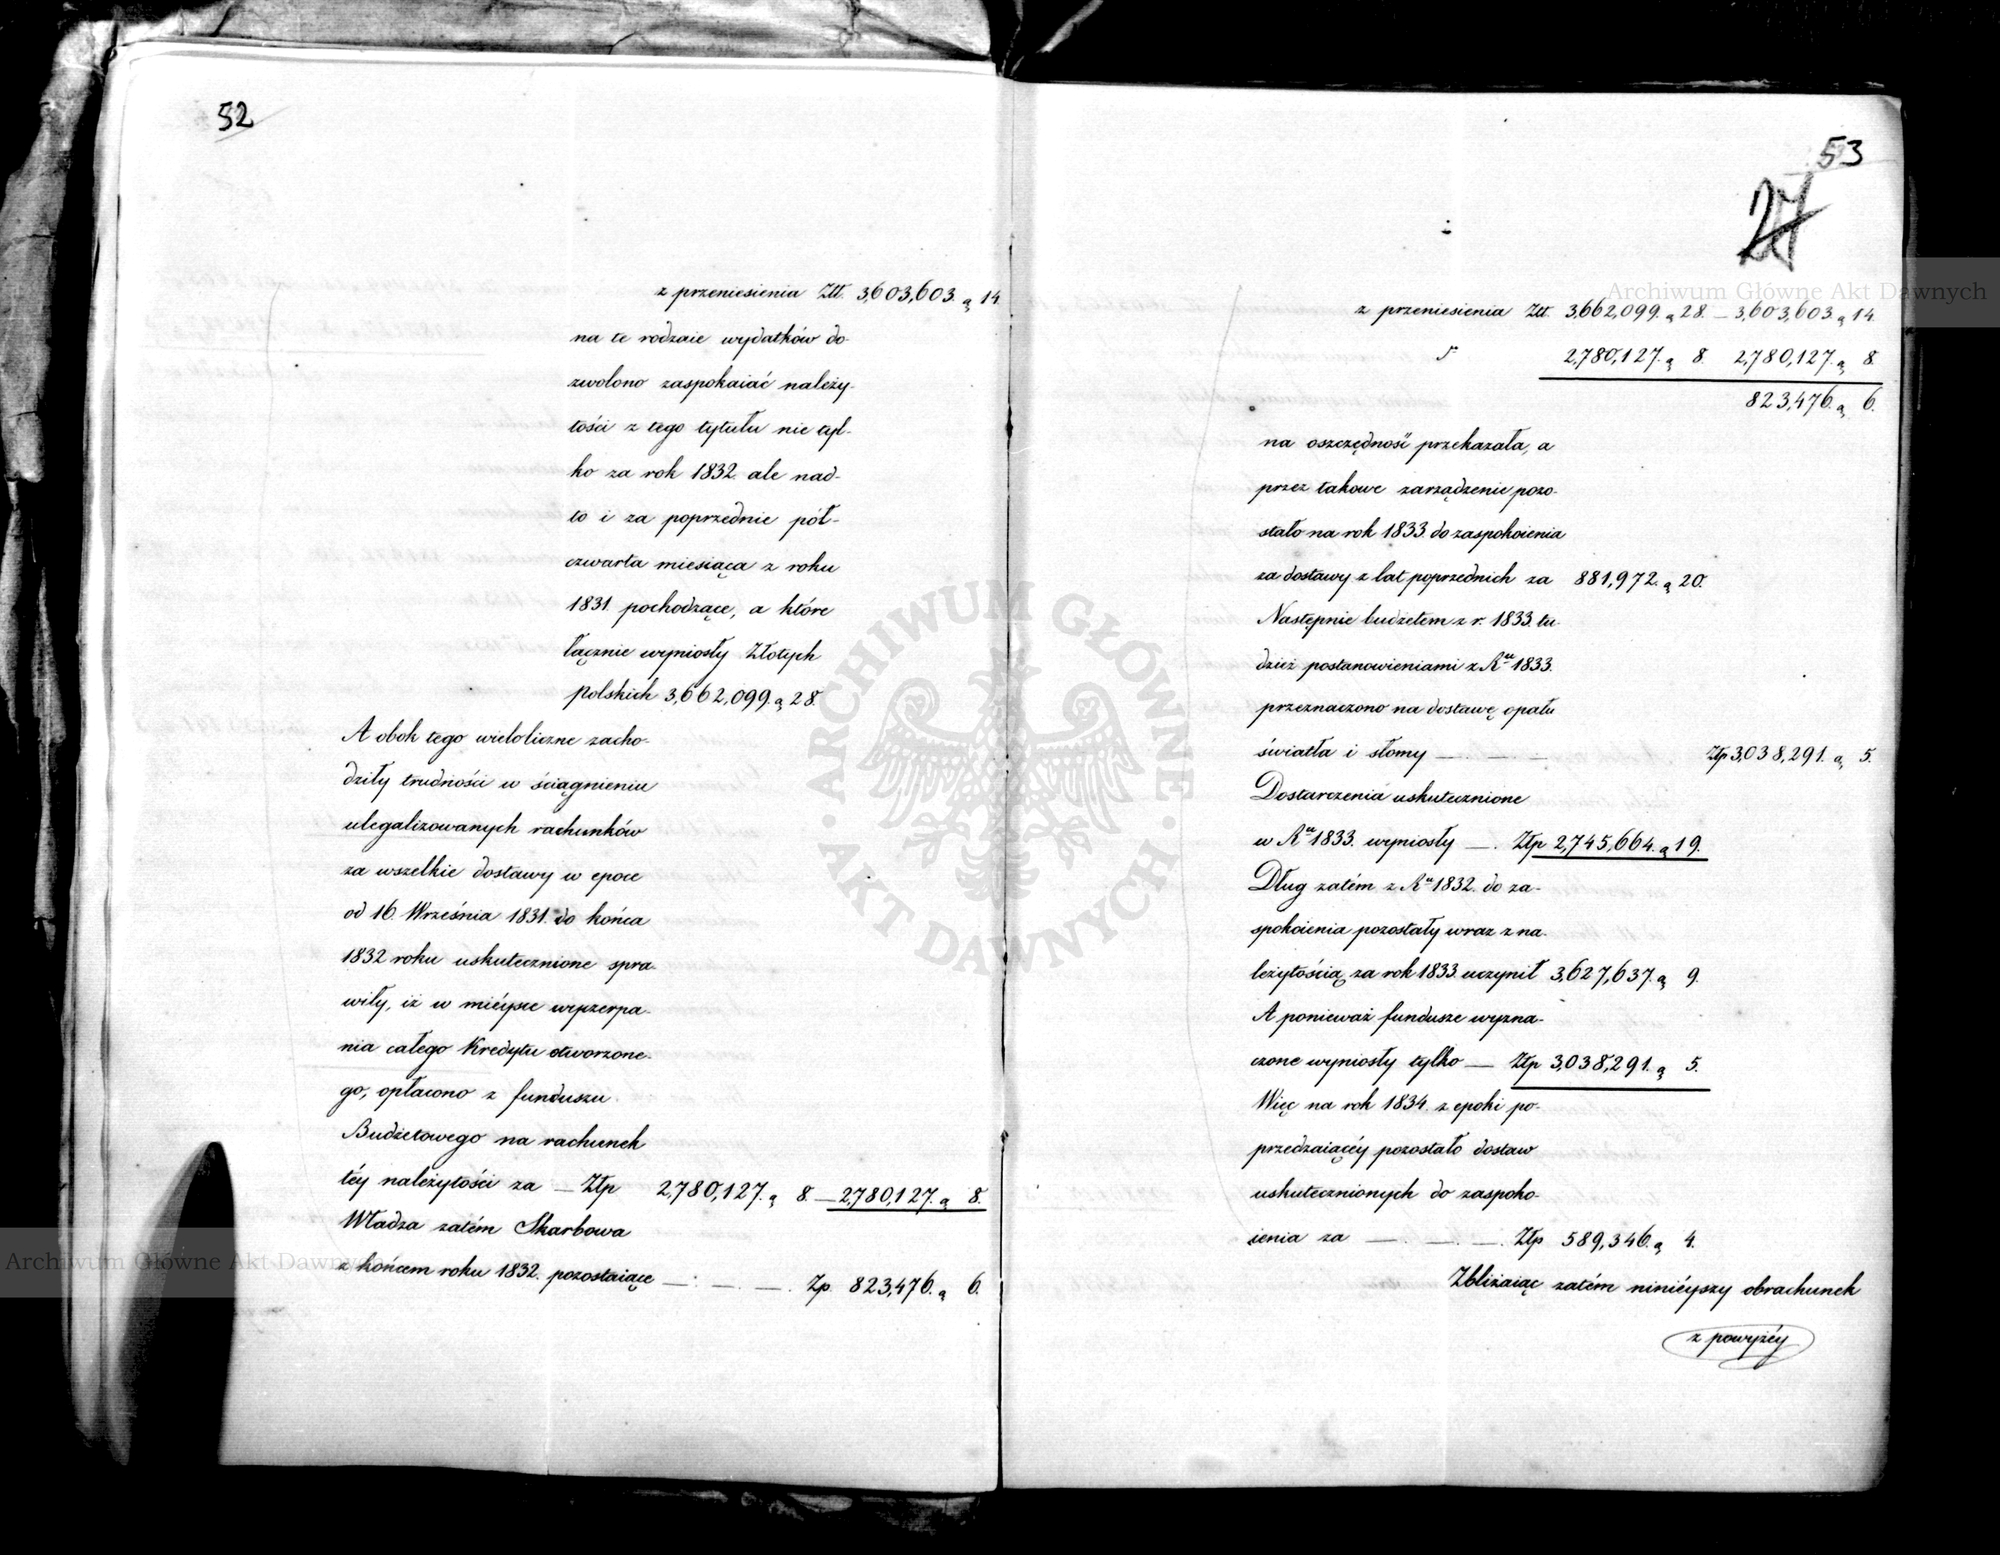 52
z przeniesienia Złł. 3,603,603. g 14.
na te rodzaie wydatków do-
zwolono zaspokaiać należy-
tości z tego tytułu nie tyl-
ko za rok 1832. ale nad-
to i za poprzednie pół-
czwarta miesiąca z roku
1831. pochodzące, a które
łącznie wyniosły Złotych
Polskich 3,662,099. g 28.
A obok tego wieloliczne zacho-
dziły trudności w ściągnieniu
ulegalizowanych rachunków
za wszelkie dostawy w epoce
od 16. Września 1831. do końca
1832 roku uskutecznione spra-
wiły, iż w miéysce wyczerpa-
nia całego Kredytu otworzone-
go, opłacono z funduszu
Budżetowego na rachunek
téy należytości za — Złp 2,780,127. g 8. — 2,780,127. g 8.
Władza zatém Skarbowa
z końcem roku 1832. pozostaiące — . — . — . Zp. 823,476. g 6.
53
27
z przeniesienia Złł. 3,662,099. g 28. — 3,603,603. g 14.
2,780,127. g 8. 2,780,127. g 8.
823,476. g 6.
na oszczędność przekazała, a
przez takowe zarządzenie pozo-
stało na rok 1833. do zaspokoienia
za dostawy z lat poprzednich za 881,972. g 20.
Następnie budżetem z r. 1833. tu-
dzież postanowieniami z Rku 1833.
przeznaczono na dostawę opału
światła i słomy — . — . — Złp 3,038,291. g 5.
Dostarczenia uskutecznione
w Rku 1833. wyniosły — . Złp 2,745,664. g 19.
Dług zatém z Rku 1832. do za-
spokoienia pozostały wraz z na-
leżytością za rok 1833. uczynił 3,627,637. g 9.
A ponieważ fundusze wyzna-
czone wyniosły tylko — Złp 3,038,291. g 5.
Więc na rok 1834. z epoki po-
przedzaiącéy pozostało dostaw
uskutecznionych do zaspoko-
ienia za — . — . — . Złp 589,346. g 4.
Zbliżaiąc zatém niniéyszy obrachunek
z powyżéy
ARCHIWUM GŁÓWNE
AKT DAWNYCH
Archiwum Główne Akt Dawnych
Archiwum Główne Akt Dawnych